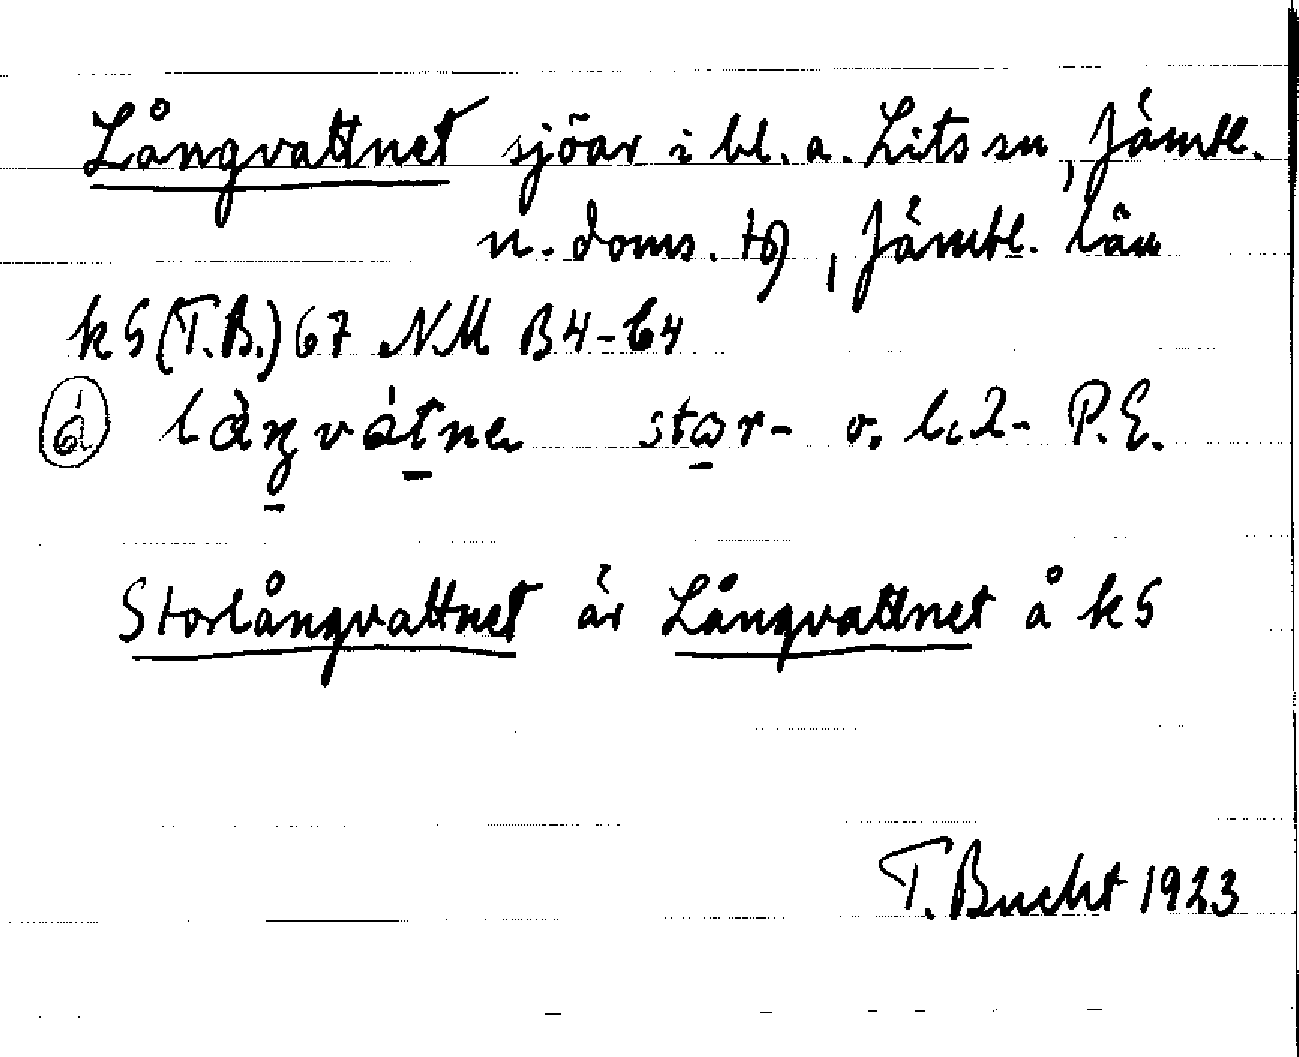 Långvattnet sjöar i bl. a. Lits sn, Jämtl.
n. doms. tg, Jämtl. län
kS (T.B.) 67 NM B4-C4
làŋvátne stor- o. P.E.
Storlångvattnet är Långvattnet å kS
T. Bucht 1923